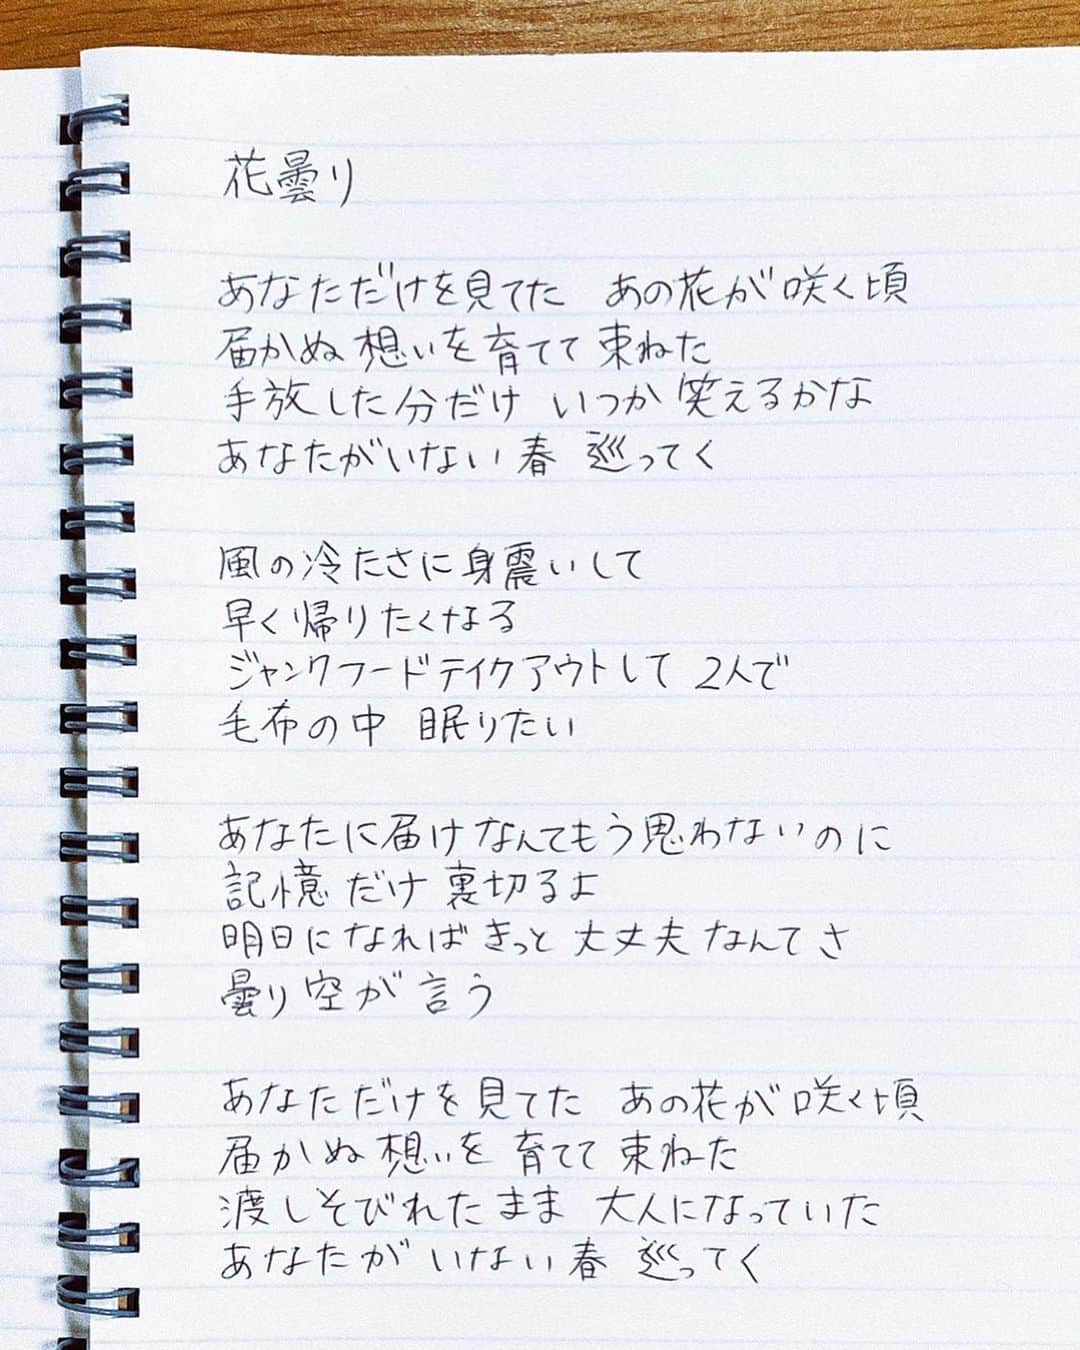 花曇り
あなただけを見てた　あの花が咲く頃
届かぬ想いを育てて 束ねた
手放した分だけ いつか 笑えるかな
あなたがいない春 巡ってく
風の冷たさに身震いして
早く帰りたくなる
ジャンクフードテイクアウトして 2人で
毛布の中 眠りたい
あなたに届けなんてもう思わないのに
記憶だけ 裏切るよ
明日になればきっと 大丈夫なんてさ
曇り空が言う
あなただけを見てた　あの花が咲く頃
届かぬ想いを 育てて 束ねた
渡しそびれたまま 大人になっていた
あなたがいない春 巡ってく